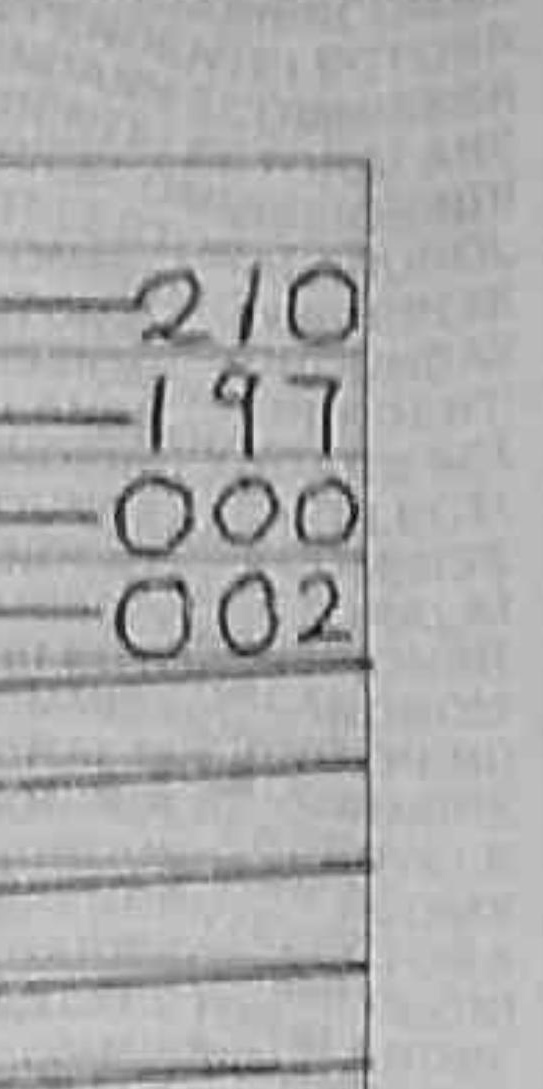 210
197
000
002